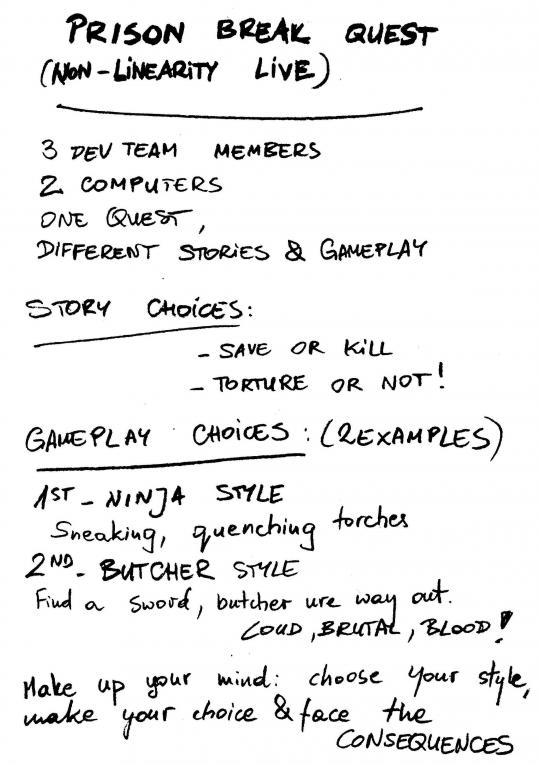 PRISON BREAK QUEST
(NON-LINEARITY LIVE)
3 DEV TEAM MEMBERS
2 COMPUTERS
ONE QUEST,
DIFFERENT STORIES & GAMEPLAY
STORY CHOICES:
- SAVE OR KILL
- TORTURE OR NOT!
GAMEPLAY CHOICES: (2 EXAMPLES)
1ST - NINJA STYLE
Sneaking, quenching torches
2ND - BUTCHER STYLE
Find a sword, butcher ure way out.
LOUD, BRUTAL, BLOOD!
Make up your mind: choose your style,
make your choice & face the
CONSEQUENCES